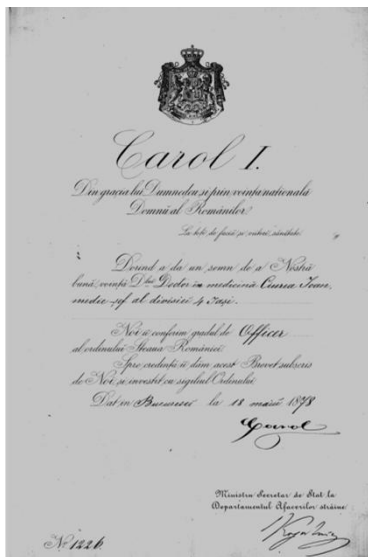 Carol I.
Din grația lui Dumnedeu și prin voința națională
Domnŭ al Românilor
La toți de facia și viitori, sănătate
Dorind a da un semn de a Nóstră
bună voință D lui Doctor în medicină Ciurea Ioan
medic șef al divisiei 4 Iași.
Noi îi conferim gradul de Officer
al ordinului Steaua României
Spre credență îi dăm acest Brevet subscris
de Noi și investit cu sigilul Ordinului
Dat în Bucuresci la 18 1878
Carol
Ministru Secretar de Stat la
Departamentul Afacerilor străine
No 1226